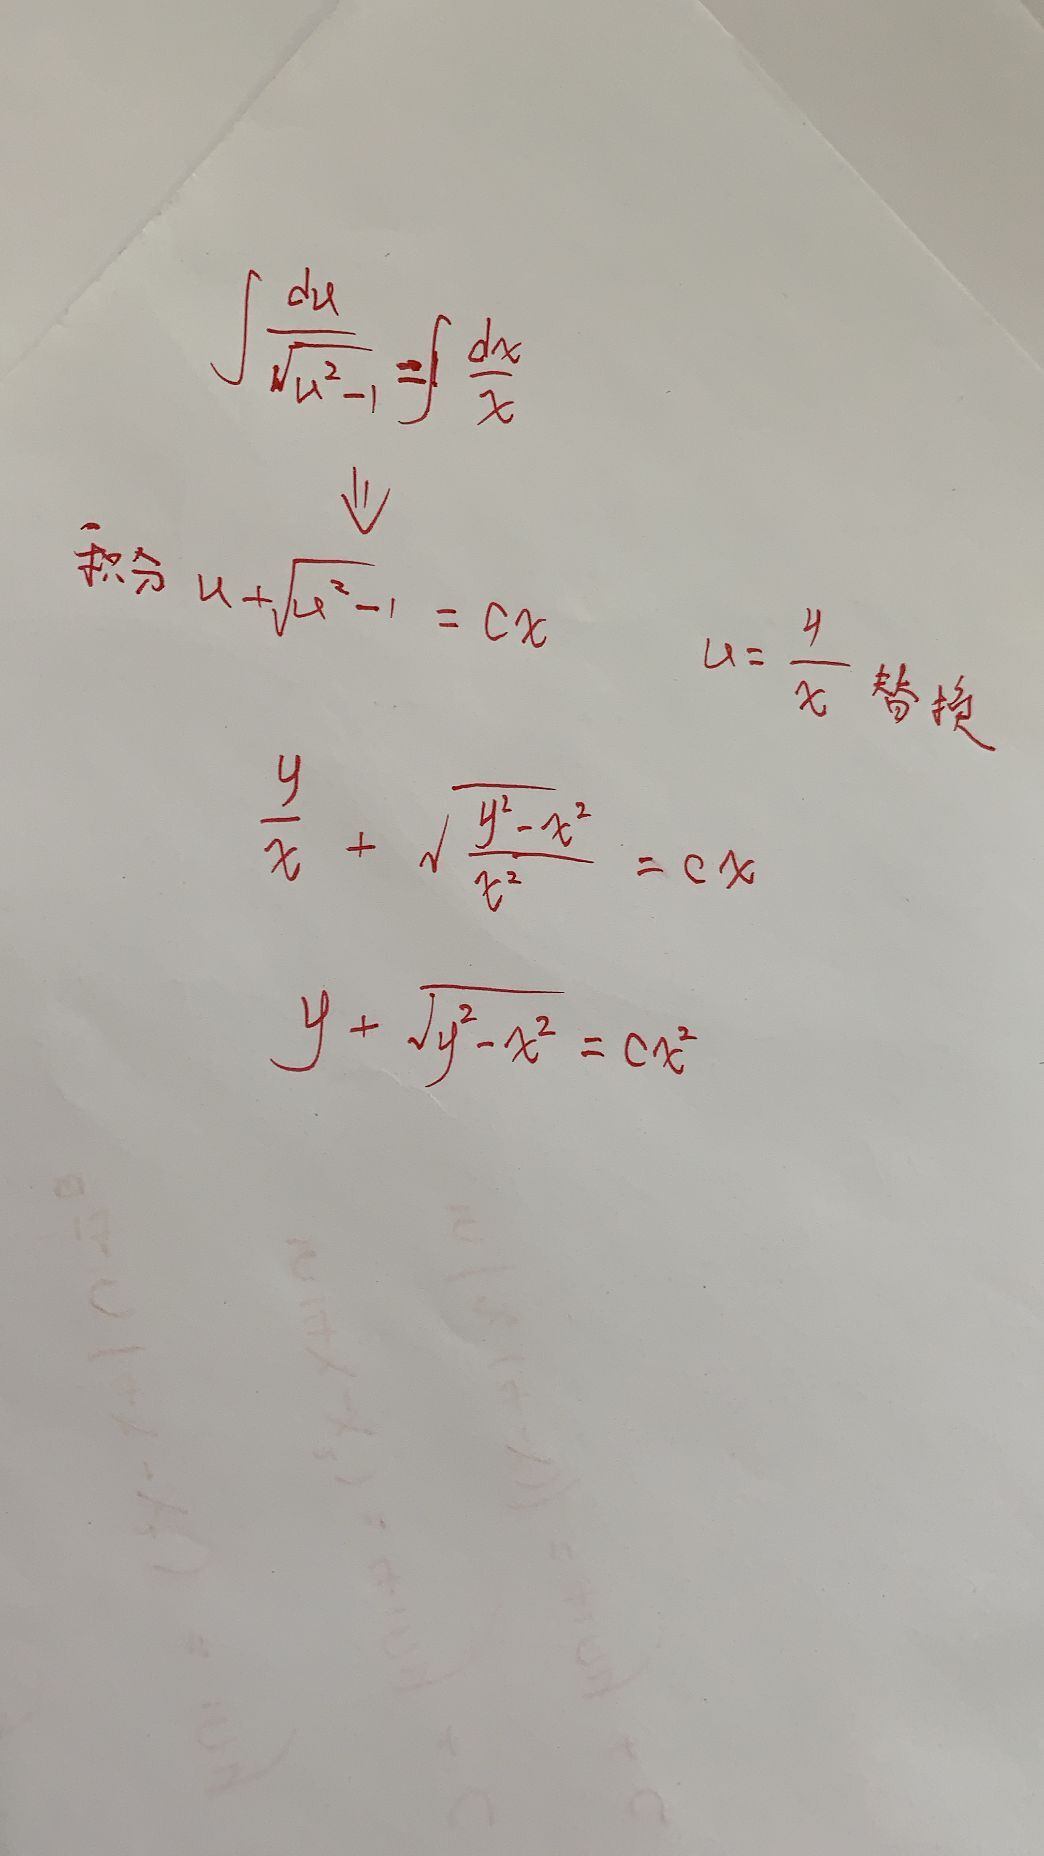 ∫ du/√(u²-1) = ∫ dx/x
⇓
积分 u+√(u²-1) = cx
u = y/x 替换
y/x + √((y²-x²)/x²) = cx
y + √(y²-x²) = cx²